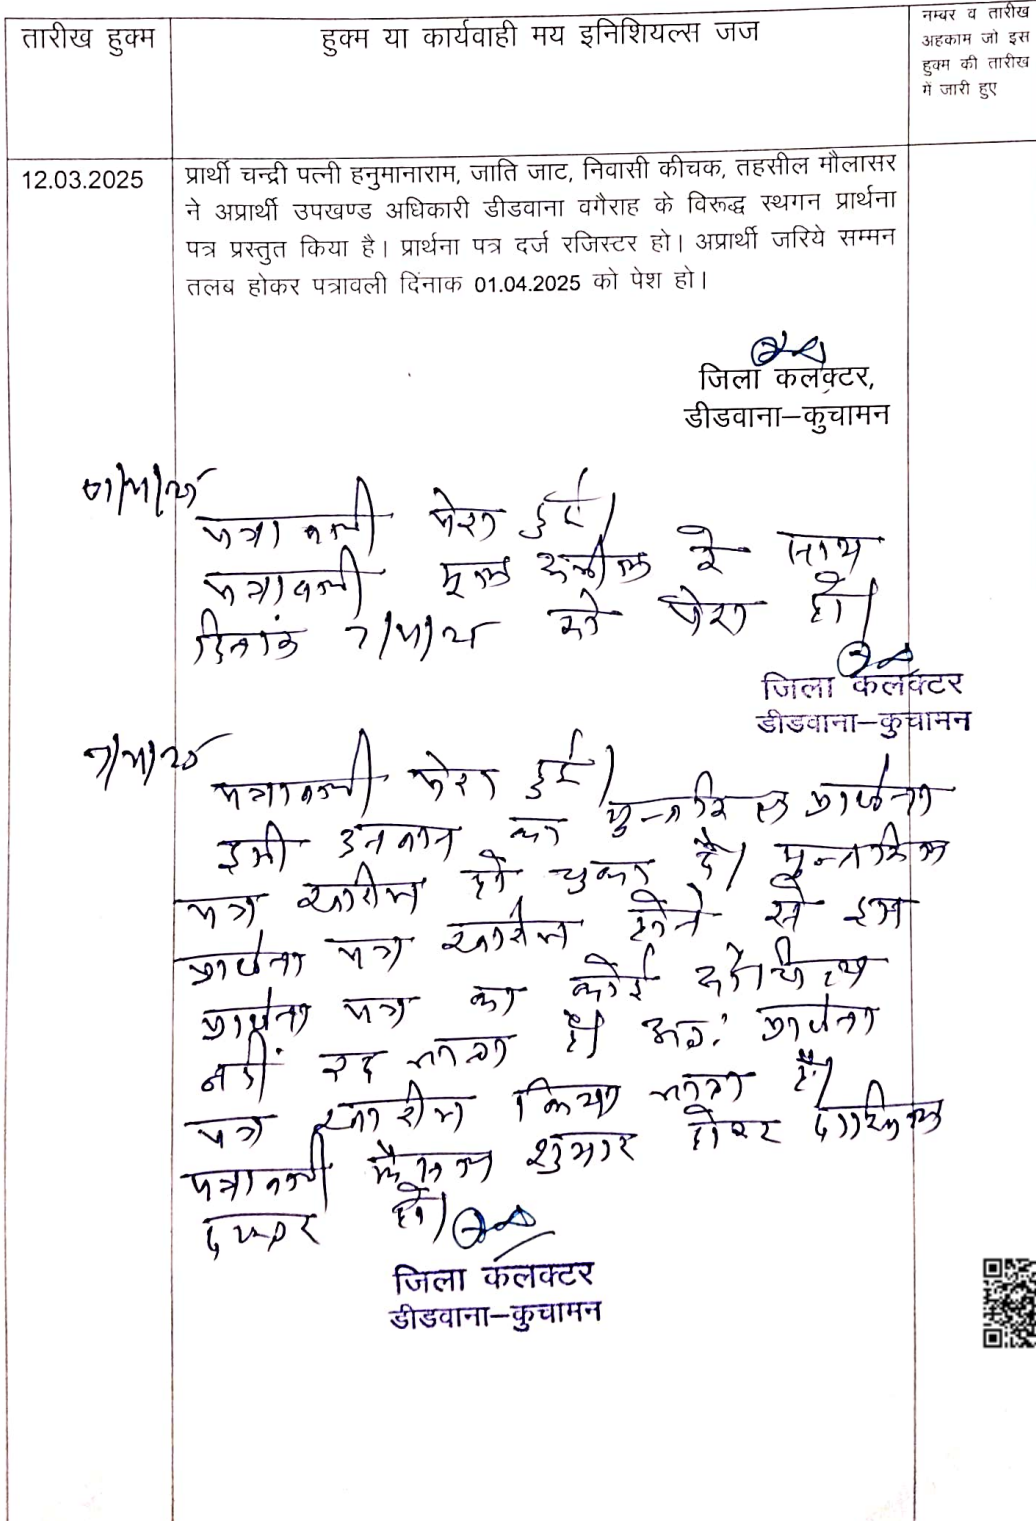 तारीख हुक्म
हुक्म या कार्यवाही मय इनिशियल्स जज
नम्बर व तारीख
अहकाम जो इस
हुक्म की तारीख
में जारी हुए
12.03.2025
प्रार्थी चन्द्री पत्नी हनुमानाराम, जाति जाट, निवासी कीचक, तहसील मौलासर
ने अप्रार्थी उपखण्ड अधिकारी डीडवाना वगैराह के विरूद्ध स्थगन प्रार्थना
पत्र प्रस्तुत किया है। प्रार्थना पत्र दर्ज रजिस्टर हो। अप्रार्थी जरिये सम्मन
तलब होकर पत्रावली दिंनाक 01.04.2025 को पेश हो।
जिला कलेक्टर,
डीडवाना–कुचामन
पत्रावली पेश हुई।
पत्रावली मूल के साथ
दिनांक 7/4/25 को पेश हो।
जिला कलेक्टर
डीडवाना–कुचामन
7/4/25
पत्रावली पेश हुई।
इसी उनवान का मुन्तकिल प्रार्थना
पत्र खारीज हो चुका है। मुन्तकिल
प्रार्थना पत्र खारीज होने से इस
प्रार्थना पत्र का कोई औचित्य
नहीं रह जाता है। अतः प्रार्थना
पत्र खारीज किया जाता है।
पत्रावली फैसल शुमार होकर दाखिल
दफ्तर हो।
जिला कलेक्टर
डीडवाना–कुचामन